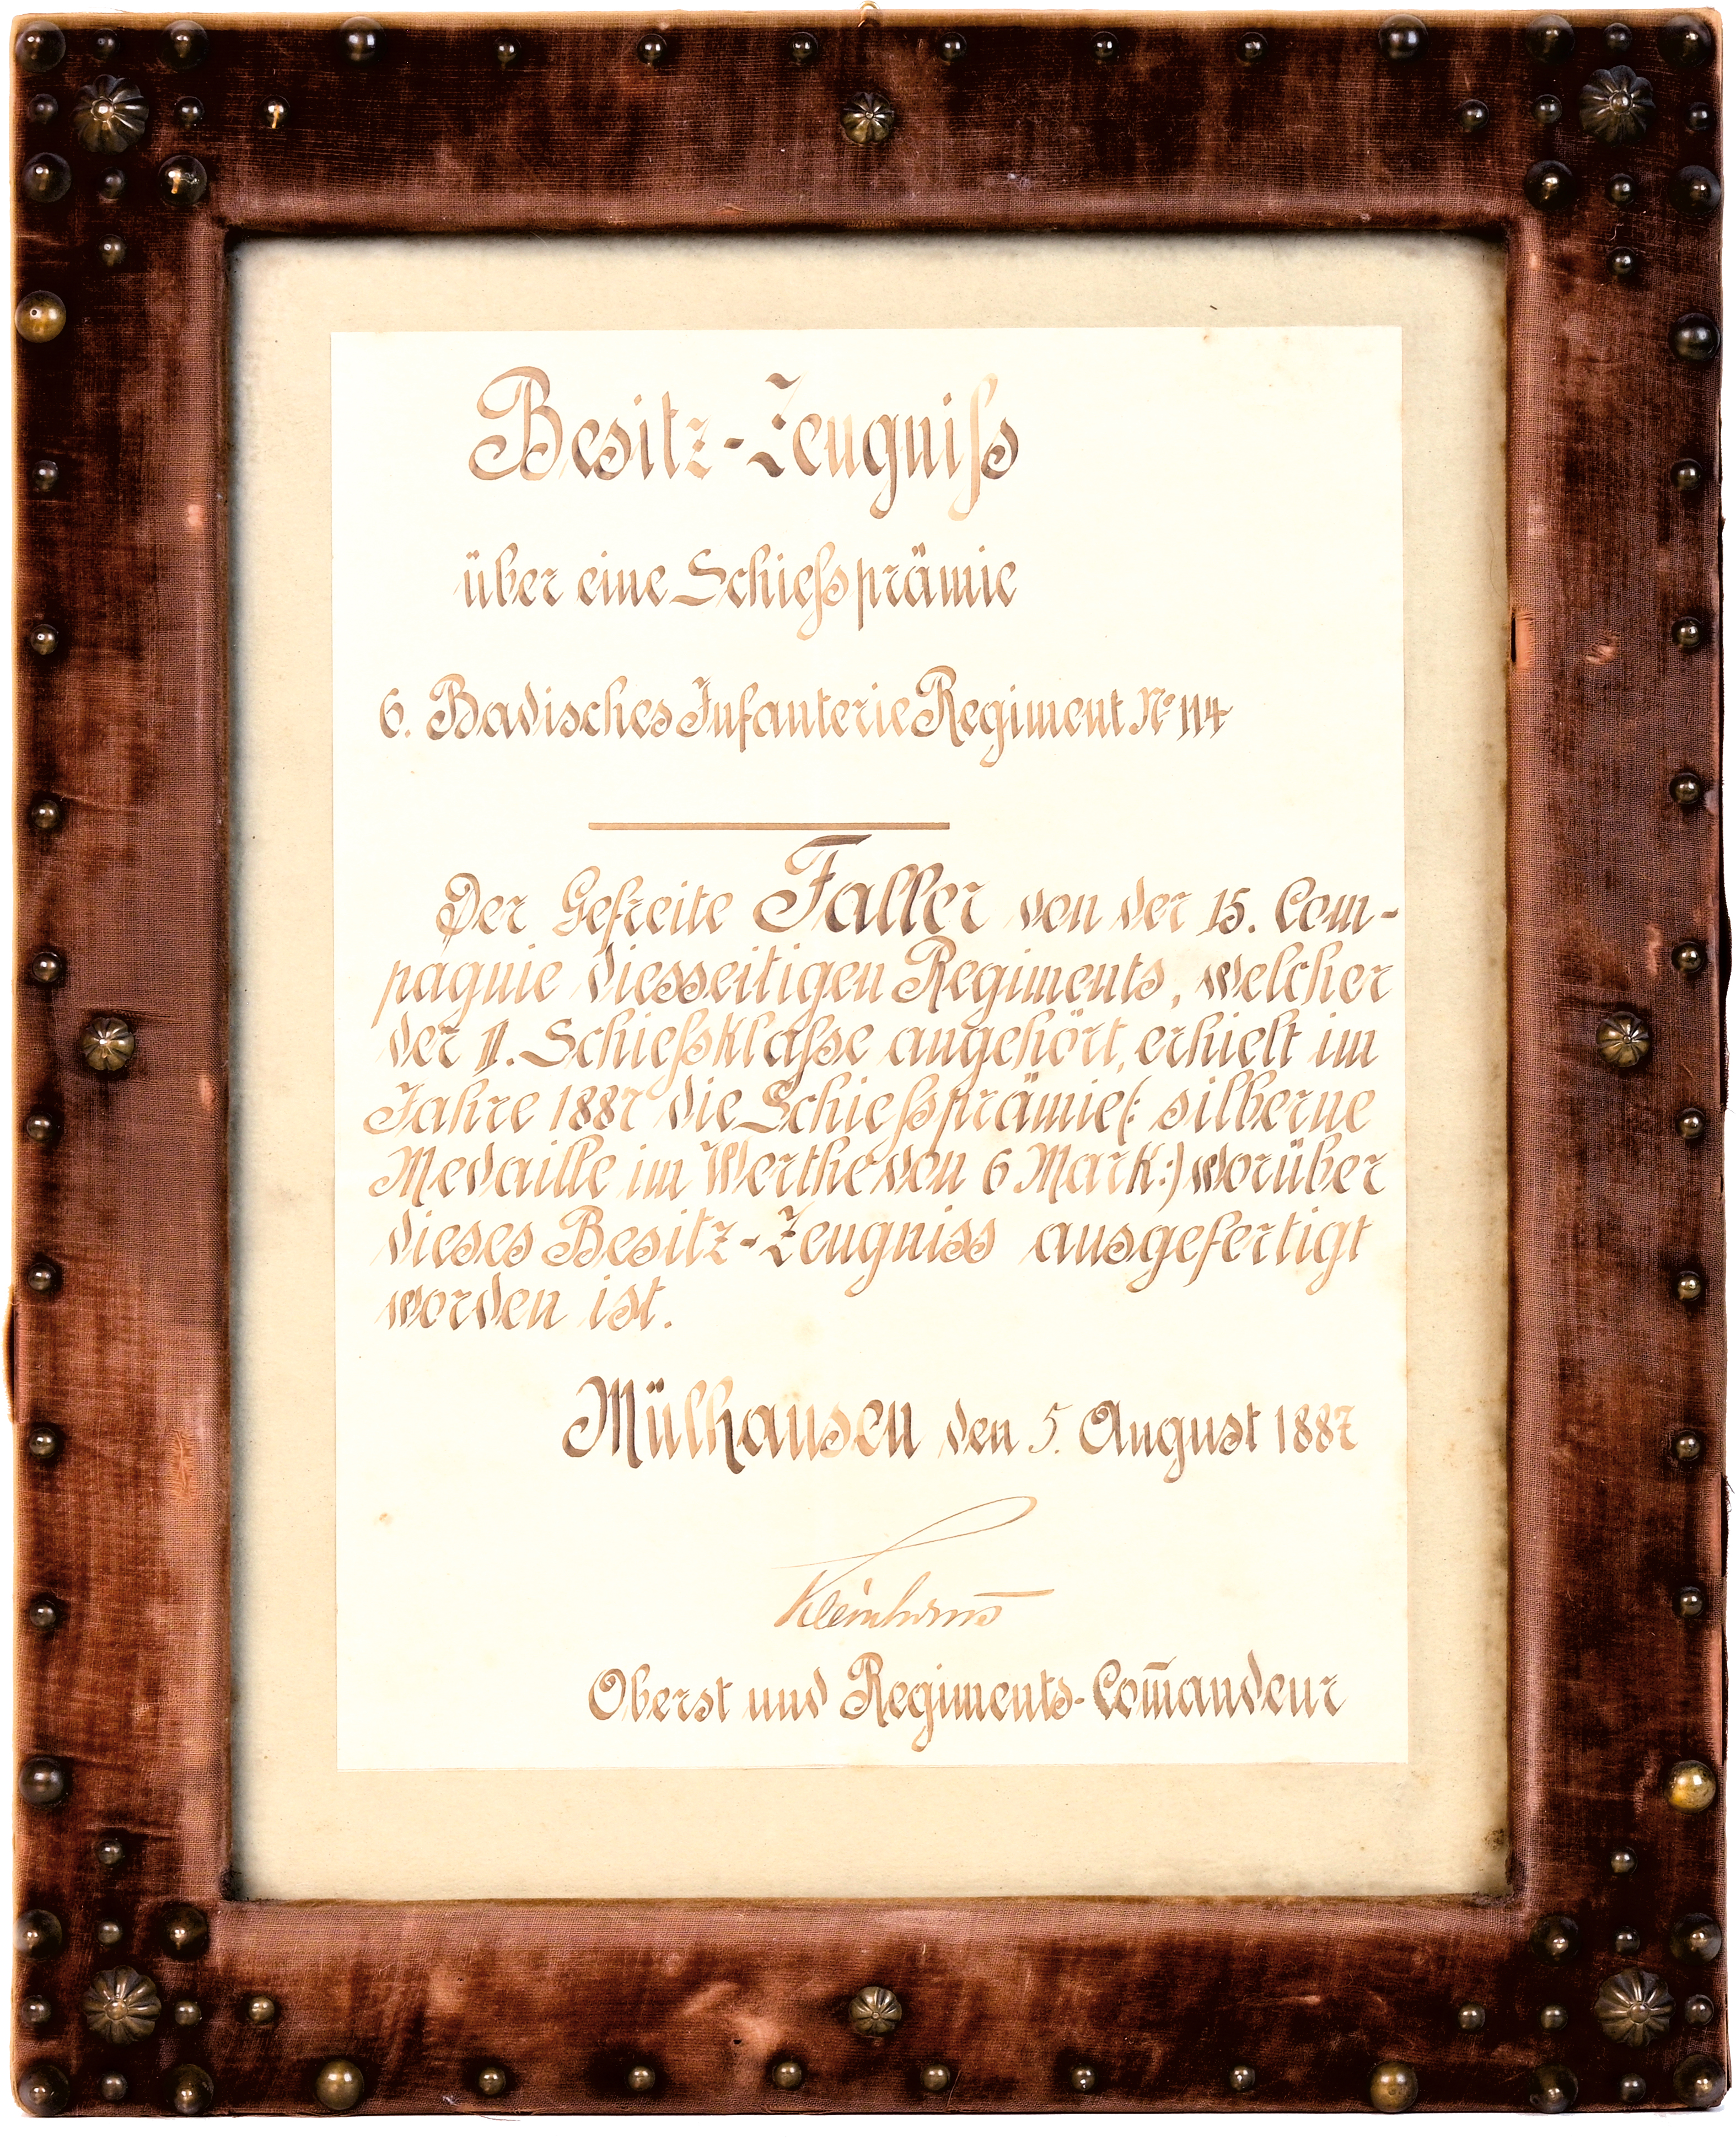 Besitz-Zeugniß
über eine Schießprämie
6. Badisches Infanterie Regiment No 114
Der Gefreite Faller von der 15. Com-
pagnie diesseitigen Regiments, welcher
der II. Schießklaße angehört, erhielt im
Jahre 1887 die Schießprämie(: silberne
Medaille im Werthe von 6 Mark:) worüber
dieses Besitz-Zeugniss ausgefertigt
worden ist.
Mülhausen den 5. August 1887
Oberst und Regiments-Com̄andeur